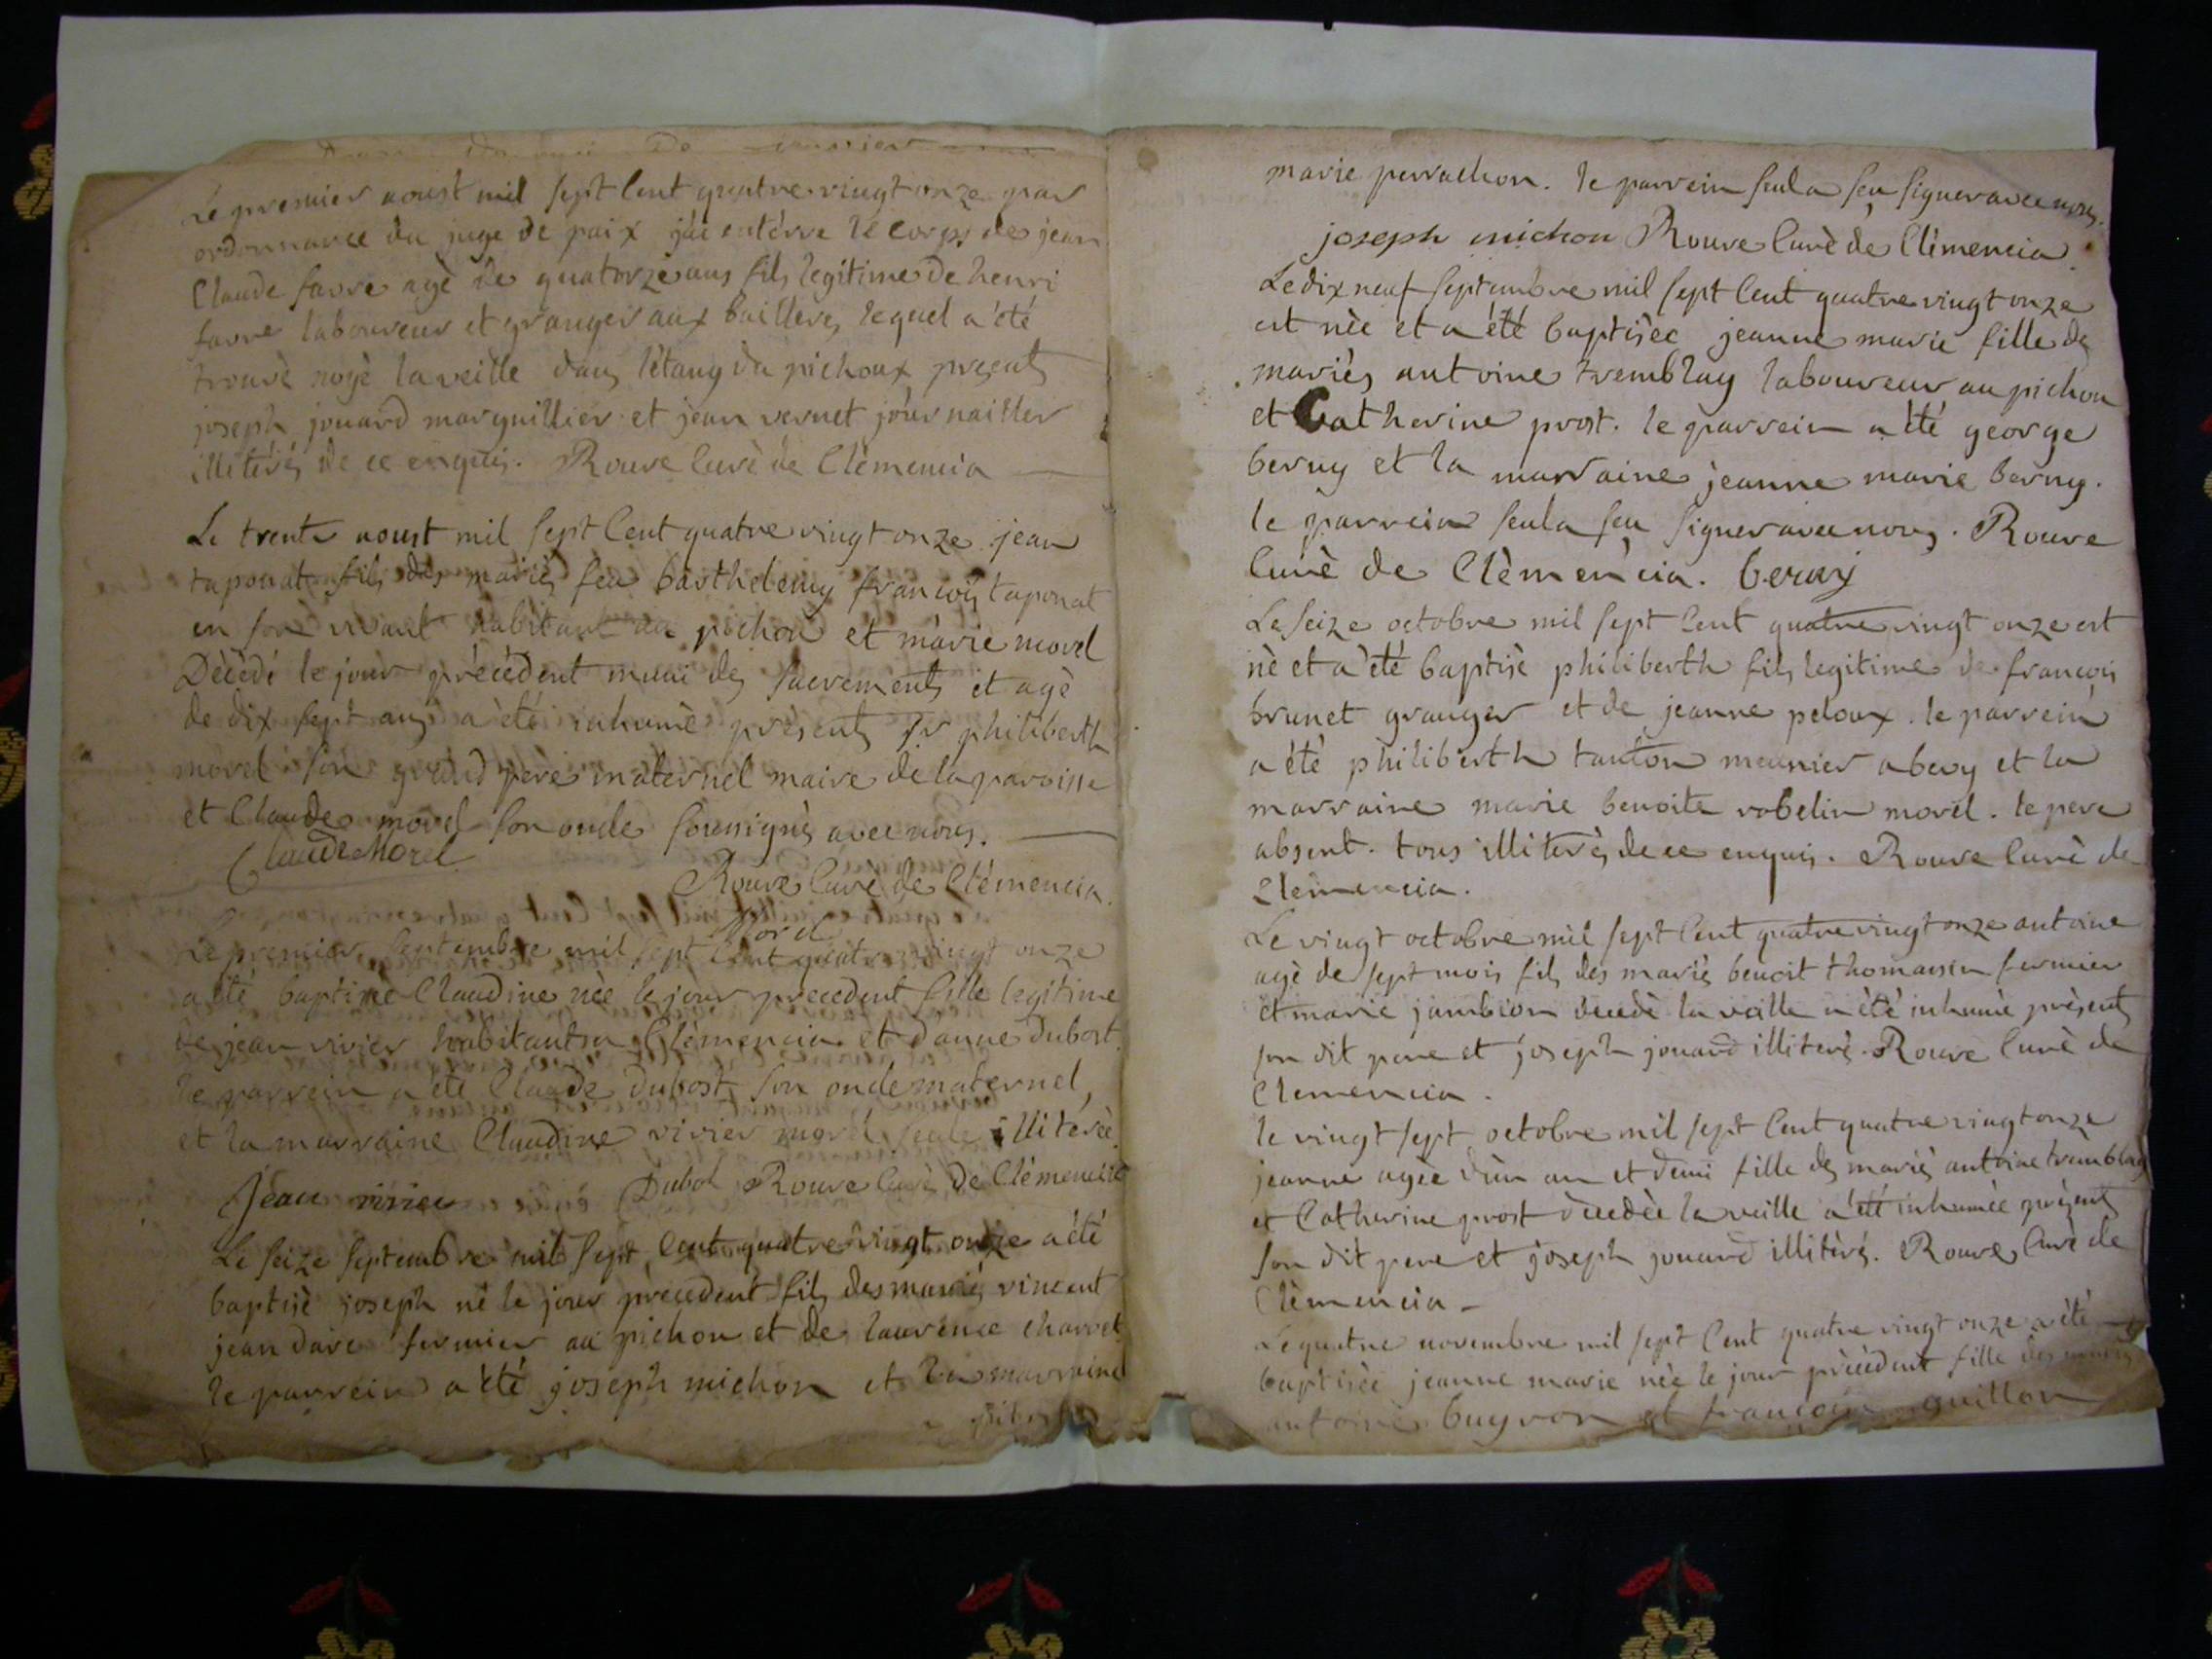 Le premier aoust mil sept Cent quatre vingt onze par
ordonnance du juge de paix j'ai entérre le corps de jean
Claude favre agè de quatorze ans fils legitime de henri
favre laboureur et granger aux baillere, lequel a été
trouvè noyè la veille dans l'étang du pichoux presents
joseph jouard marguillier et jean vernet journaillier
illiterés de ce enquis. Rouve Curè de Clèmencia
Le trente aoust mil sept Cent quatre vingt onze jean
taponat fils des mariés feu barthelemy françois taponat
en son vivant habitant au pichon et marie morel
Dècèdé le jour prècèdent muni des sacrements et agè
de dix sept ans a été inhumè présents sr philiberth
morel son grand pere maternel maire de la paroisse
et Claude morel son oncle soussignès avec nous.
Claude Morel
Rouve Curè de Clèmencia.
Morel
Le premier septembre mil sept Cent quatre vingt onze
a été baptisèe Claudine nèe le jour precedent fille legitime
de jean vivier habitant a Clèmencia et d'anne Dubost.
le parrein a été Claude Dubost son oncle maternel,
et la marraine Claudine vivier morel seule illitérèe.
Jean vivier Dubot Rouve Curè de Clèmencia
Le seize septembre mil sept Cent quatre vingt onze a été
baptisè joseph nè le jour prècedent fils des mariés vincent
jean dare fermier au pichon et de laurence charvet
le parrein a été joseph michon et la marraine
marie perrachon. le parrein seul a seu signer avec nous.
joseph michon Rouve Curè de Clèmencia.
Le dix neuf septembre mil sept Cent quatre vingt onze
est nèe et a été baptisèe jeanne marie fille des
mariés antoine tremblay laboureur au pichon
et Catherine prost. le parrein a été george
berny et la marraine jeanne marie berny.
le parrein seul a seu signer avec nous. Rouve
Curè de Clèmencia. berny
Le seize octobre mil sept Cent quatre vingt onze est
nè et a été baptisè philiberth fils legitime de françois
brunet granger et de jeanne peloux. le parrein
a été philiberth tauton meunier a bevy et la
marraine marie benoite robelin morel. le pere
absent. tous illiterés de ce enquis. Rouve Curè de
Clèmencia.
Le vingt octobre mil sept Cent quatre vingt onze antoine
agè de sept mois fils des mariés benoit thomassin fermier
et marie jambion decedè la veille a été inhumè présents
son dit pere et joseph jouard illiterés. Rouve Curè de
Clemencia.
le vingt sept octobre mil sept Cent quatre vingt onze
jeanne agèe d'un an et demi fille des mariés antoine tremblay
et Catherine prost dècedèe la veille a été inhumèe présents
son dit pere et joseph jouard illitèrés. Rouve Curè de
Clèmencia
Le quatre novembre mil sept Cent quatre vingt onze a été
baptisèe jeanne marie nèe le jour prècèdent fille des mariés
antoine buyron et françoise guillon